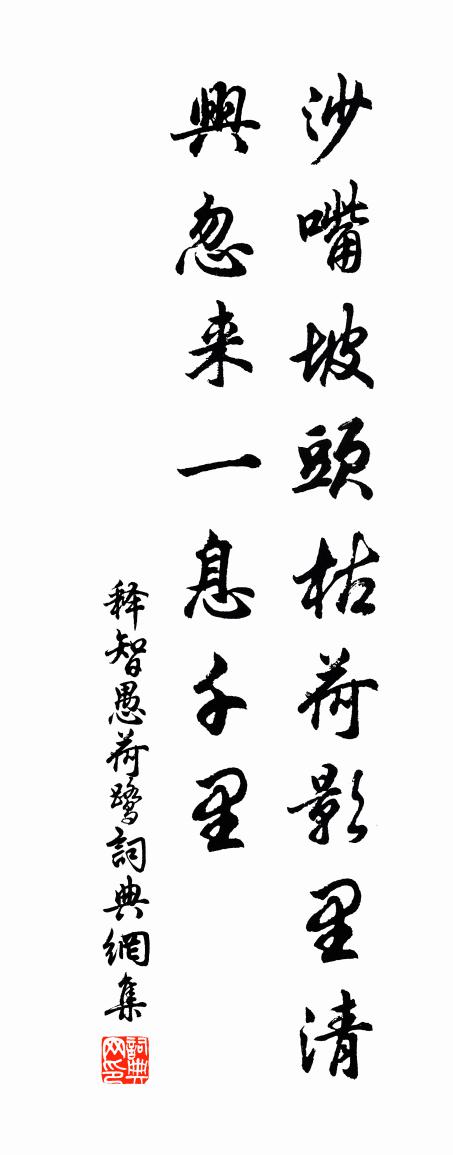 沙嘴坡頭枯荷影里清
興忽来一息千里
释智愚荷鹭詞典網集
詞典网印